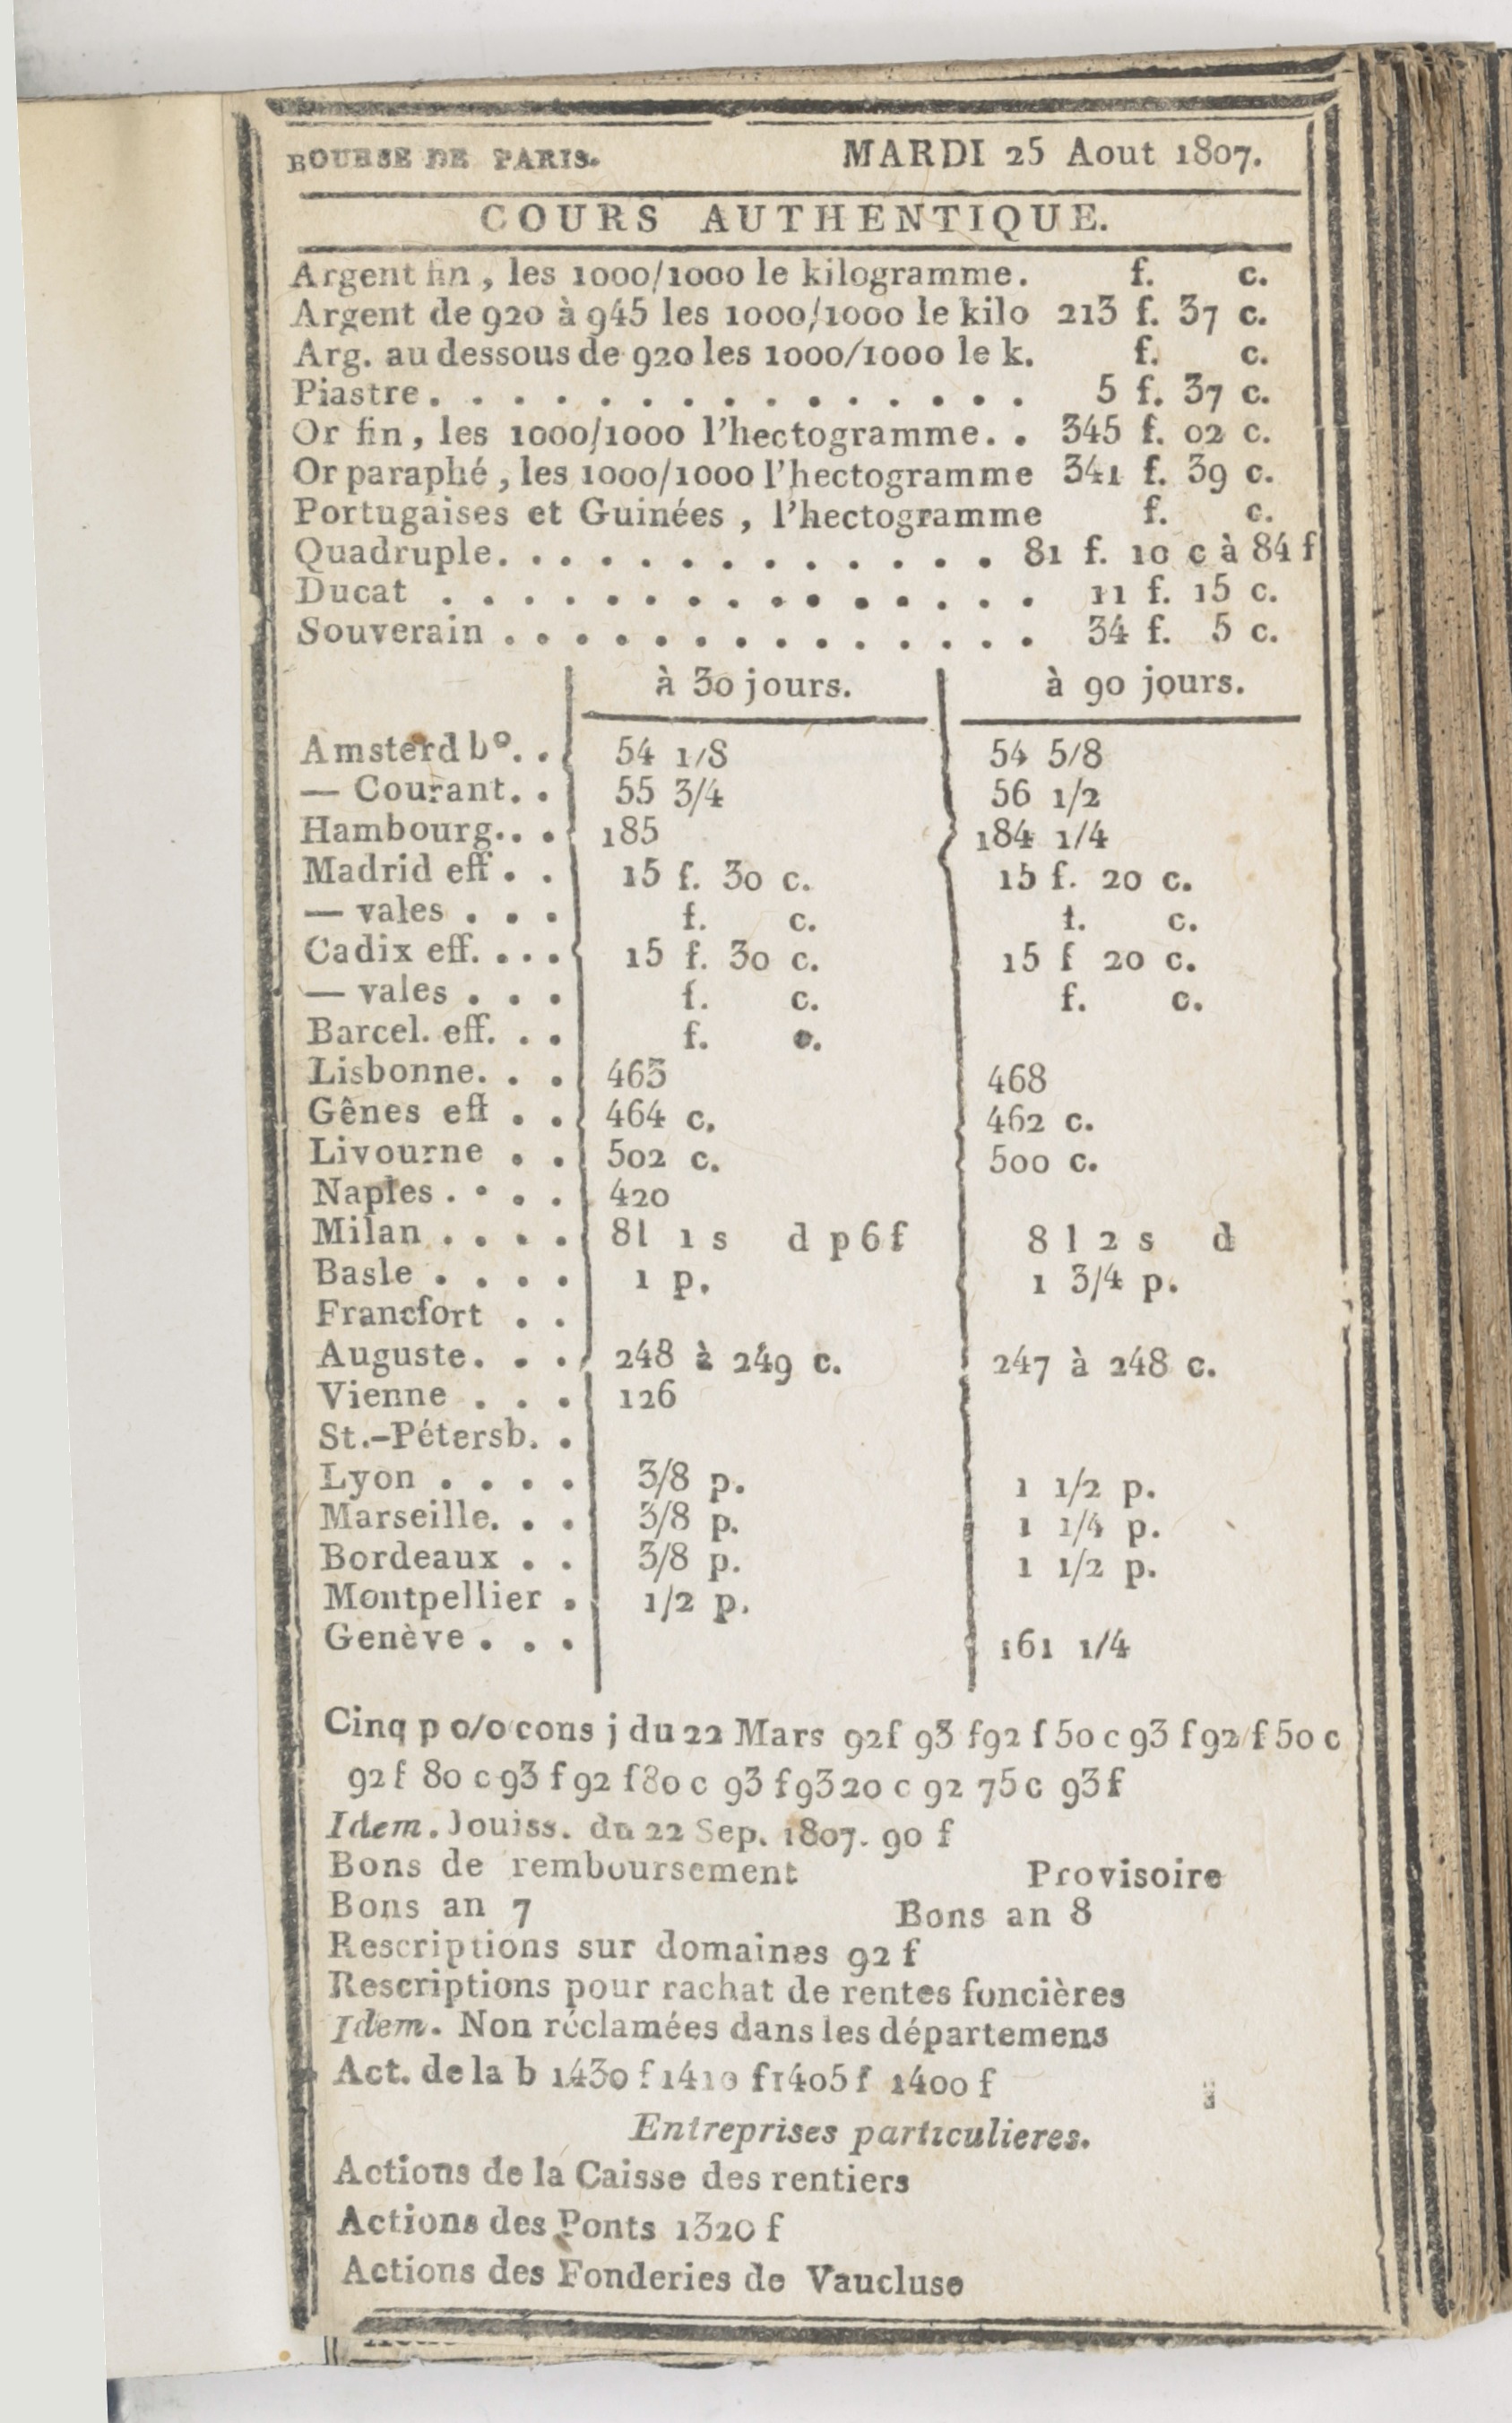 BOURSE DE PARIS. MARDI 25 Aout 1807.
COURS AUTHENTIQUE.
Argent fin, les 1000/1000 le kilogramme. f. c.
Argent de 920 à 945 les 1000/1000 le kilo 213 f. 37 c.
Arg. au dessous de 920 les 1000/1000 le k. f. c.
Piastre. . . . . . . . . . . . . . . 5 f. 37 c.
Or fin, les 1000/1000 l'hectogramme. . 345 f. 02 c.
Or paraphé, les 1000/1000 l'hectogramme 341 f. 39 c.
Portugaises et Guinées, l'hectogramme f. c.
Quadruple. . . . . . . . . . . . . 81 f. 10 c à 84 f
Ducat . . . . . . . . . . . . . . . 11 f. 15 c.
Souverain . . . . . . . . . . . . . . 34 f. 5 c.
à 30 jours. à 90 jours.
Amsterd bº. . 54 1/8 54 5/8
— Courant. . 55 3/4 56 1/2
Hambourg. . . 185 184 1/4
Madrid eff . . 15 f. 30 c. 15 f. 20 c.
— vales . . . f. c. f. c.
Cadix eff. . . . 15 f. 30 c. 15 f 20 c.
— vales . . . f. c. f. c.
Barcel. eff. . . f. c.
Lisbonne. . . 463 468
Gênes eff . . 464 c. 462 c.
Livourne . . 502 c. 500 c.
Naples . . . . 420
Milan . . . . 8 l 1 s d p 6 f 8 l 2 s d
Basle . . . . 1 p. 1 3/4 p.
Francfort . .
Auguste. . . 248 à 249 c. 247 à 248 c.
Vienne . . . 126
St.-Pétersb. .
Lyon . . . . 3/8 p. 1 1/2 p.
Marseille. . . 3/8 p. 1 1/4 p.
Bordeaux . . 3/8 p. 1 1/2 p.
Montpellier . 1/2 p.
Genève . . . 161 1/4
Cinq p 0/0 cons j du 22 Mars 92f 93 f 92 f 50 c 93 f 92 f 50 c
92 f 80 c 93 f 92 f 80 c 93 f 93 20 c 92 75 c 93 f
Idem. Jouiss. du 22 Sep. 1807. 90 f
Bons de remboursement Provisoire
Bons an 7 Bons an 8
Rescriptions sur domaines 92 f
Rescriptions pour rachat de rentes foncières
Idem. Non réclamées dans les départemens
Act. de la b 1430 f 1410 f 1405 f 1400 f
Entreprises particulieres.
Actions de la Caisse des rentiers
Actions des Ponts 1320 f
Actions des Fonderies de Vaucluse